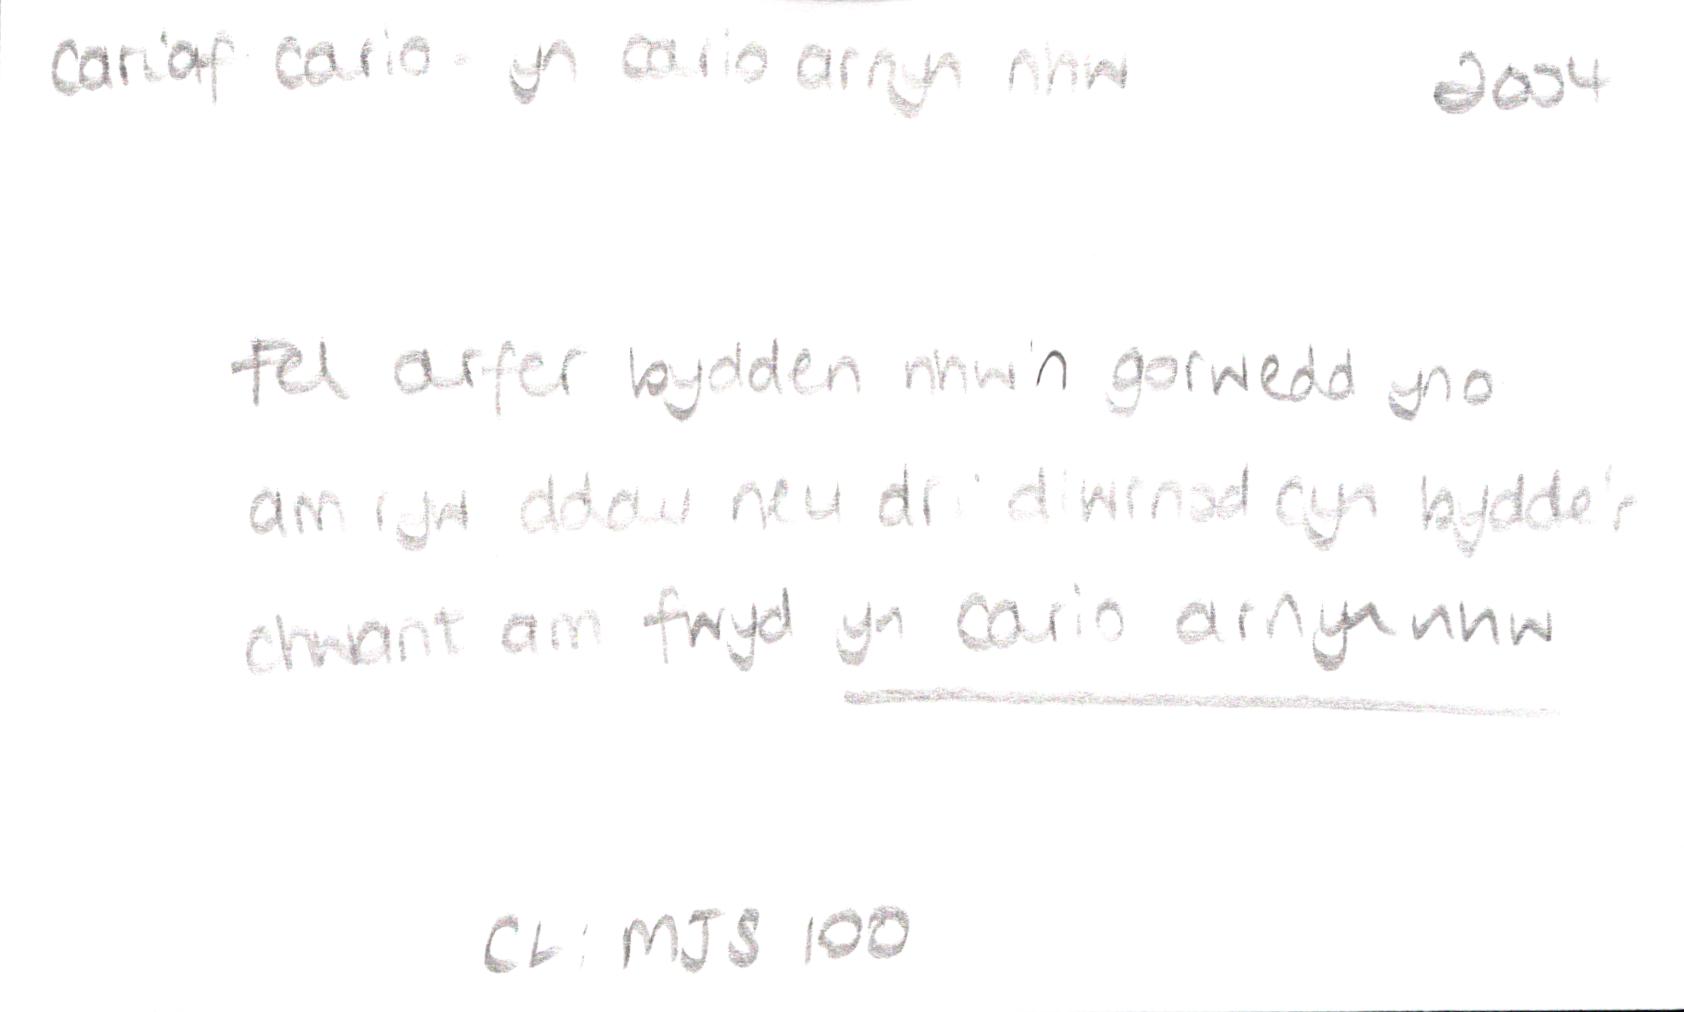 cariaf: cario - yn cario arnyn nhw 2004
Fel arfer bydden nhw'n gorwedd yno
am ryw ddau neu dri diwrnod cyn bydde'r
chwant am fwyd yn cario arnyn nhw
CL: MJS 100